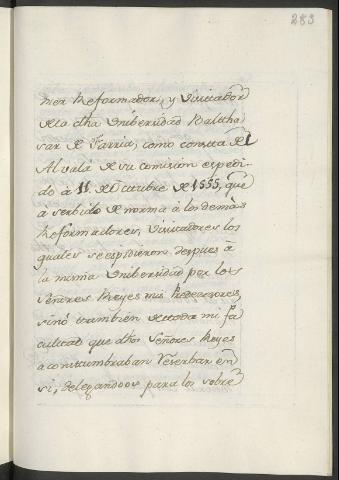 283
mer Reformador, y Visitador
de la dha Unibersidad Baltha
sar de Farria, como consta del
Alvalá de su comision espedi-
do á 11 de Octubre de 1555, que
á serbido de norma á los demas
Reformadores, Visitadores los
quales se espidieron despues á
la misma Unibersidad por los
Señores Reyes mis Predecesores,
sinó tambien de toda mi fa
cultad que dhos Señores Reyes
acostumbraban reserbar en
si, delegandoos para los sobre